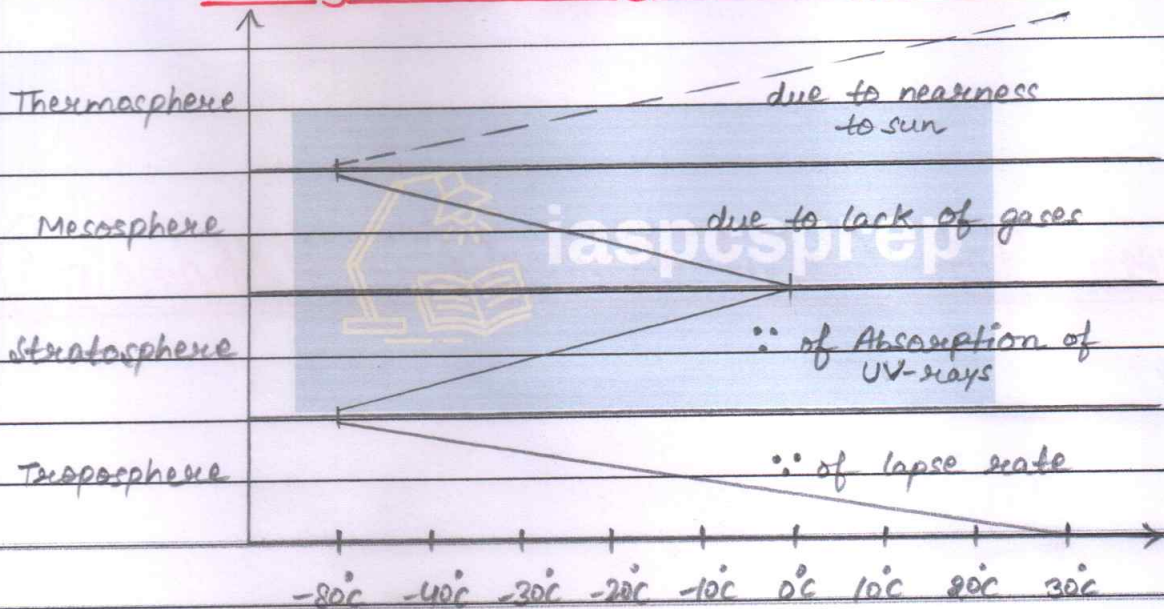 Thermosphere
due to nearness
to sun
Mesosphere
due to lack of gases
iaspcsprep
Stratosphere
∵ of Absorption of
UV-rays
Troposphere
∵ of lapse rate
-80°C -40°C -30°C -20°C -10°C 0°C 10°C 20°C 30°C